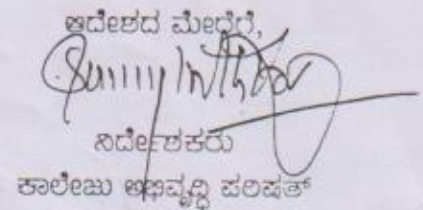 ಆದೇಶದ ಮೇರೆಗೆ,
ನಿರ್ದೇಶಕರು
ಕಾಲೇಜು ಅಭಿವೃದ್ಧಿ ಪರಿಷತ್